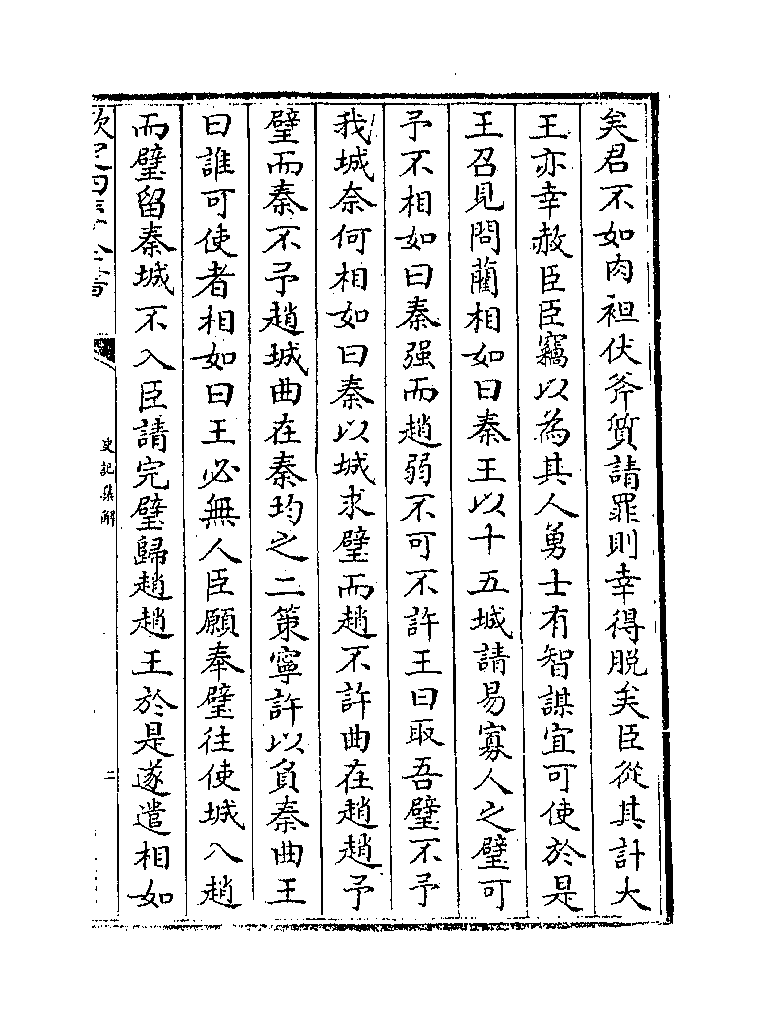 矣君不如肉袒伏斧質請罪則幸得脱矣臣從其計大
王亦幸赦臣臣竊以為其人勇士有智謀宜可使於是
王召見問藺相如曰秦王以十五城請易寡人之璧可
予不相如曰秦强而趙弱不可不許王曰取吾璧不予
我城奈何相如曰秦以城求璧而趙不許曲在趙趙予
璧而秦不予趙城曲在秦均之二策寧許以負秦曲王
曰誰可使者相如曰王必無人臣願奉璧往使城入趙
而璧留秦城不入臣請完璧歸趙趙王於是遂遣相如
欽定四庫全書
史記集解
二